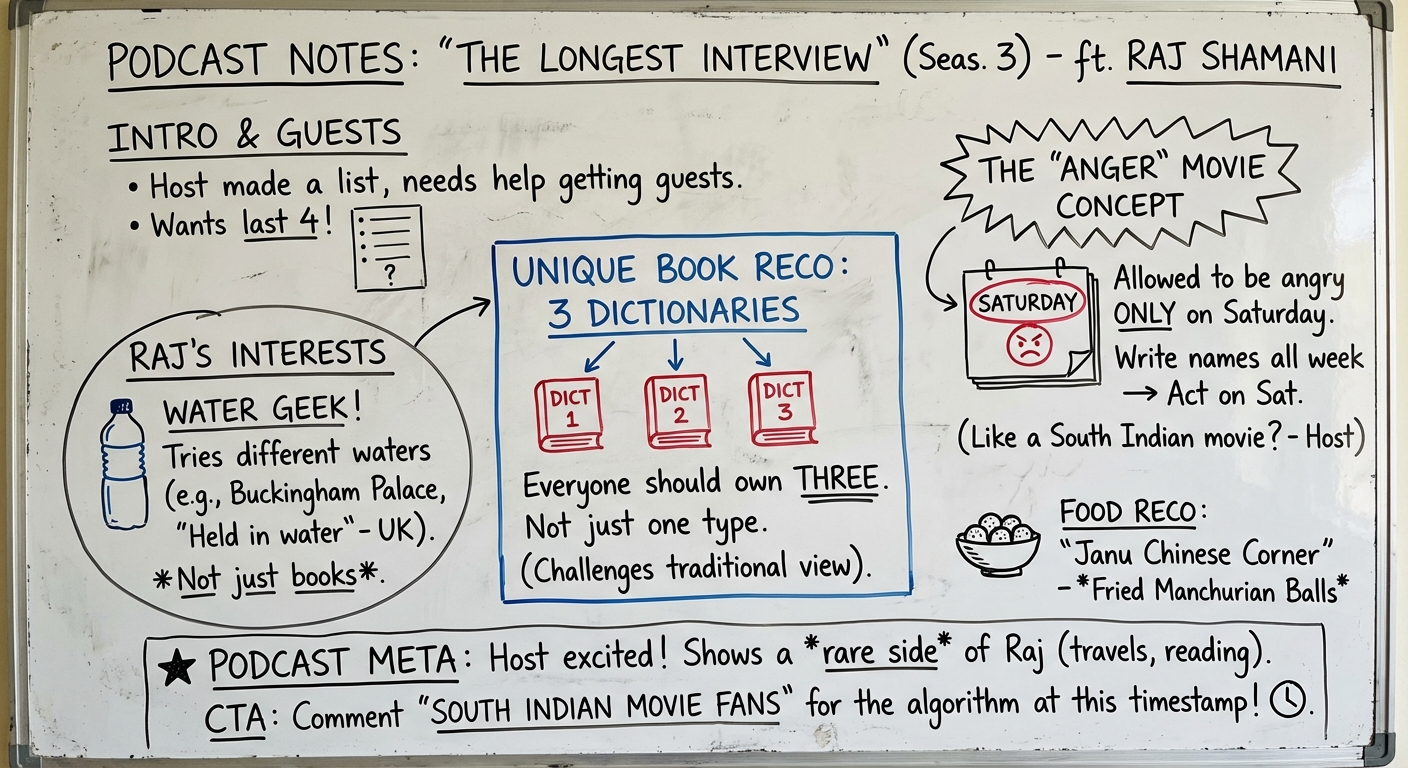 PODCAST NOTES: "THE LONGEST INTERVIEW" (Seas. 3) - ft. RAJ SHAMANI
INTRO & GUESTS
• Host made a list, needs help getting guests.
• Wants last 4!
?
RAJ'S INTERESTS
WATER GEEK!
Tries different waters
(e.g., Buckingham Palace,
"Held in water" - UK).
*Not just books*.
UNIQUE BOOK RECO:
3 DICTIONARIES
DICT 1
DICT 2
DICT 3
Everyone should own THREE.
Not just one type.
(Challenges traditional view).
THE "ANGER" MOVIE
CONCEPT
SATURDAY
Allowed to be angry
ONLY on Saturday.
Write names all week
→ Act on Sat.
(Like a South Indian movie? - Host)
FOOD RECO:
"Janu Chinese Corner"
- *Fried Manchurian Balls*
★ PODCAST META: Host excited! Shows a *rare side* of Raj (travels, reading).
CTA: Comment "SOUTH INDIAN MOVIE FANS" for the algorithm at this timestamp! .